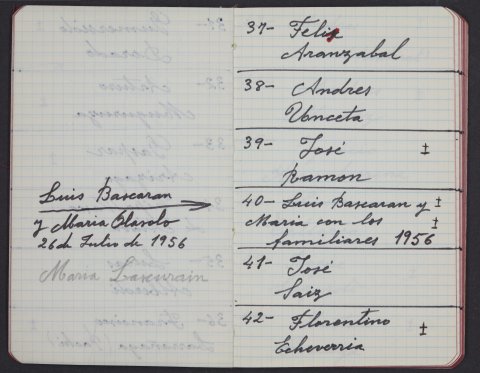 Luis Bascaran
y Maria Olavolo
26 de Julio de 1956
Maria Lascurain
37- Felix
Aranzabal
38- Andres
Unceta
39- José ±
Ramon
40- Luis Bascaran y ±
Maria con los ±
familiares 1956
41- José
Saiz
42- Florentino ±
Echeverria